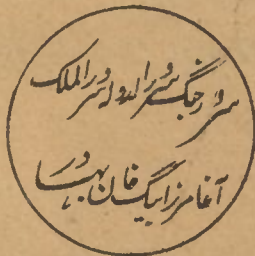 سرور جنگ سرور الدولہ سرور الملک
آغا مرزا بیگ خان بہادر